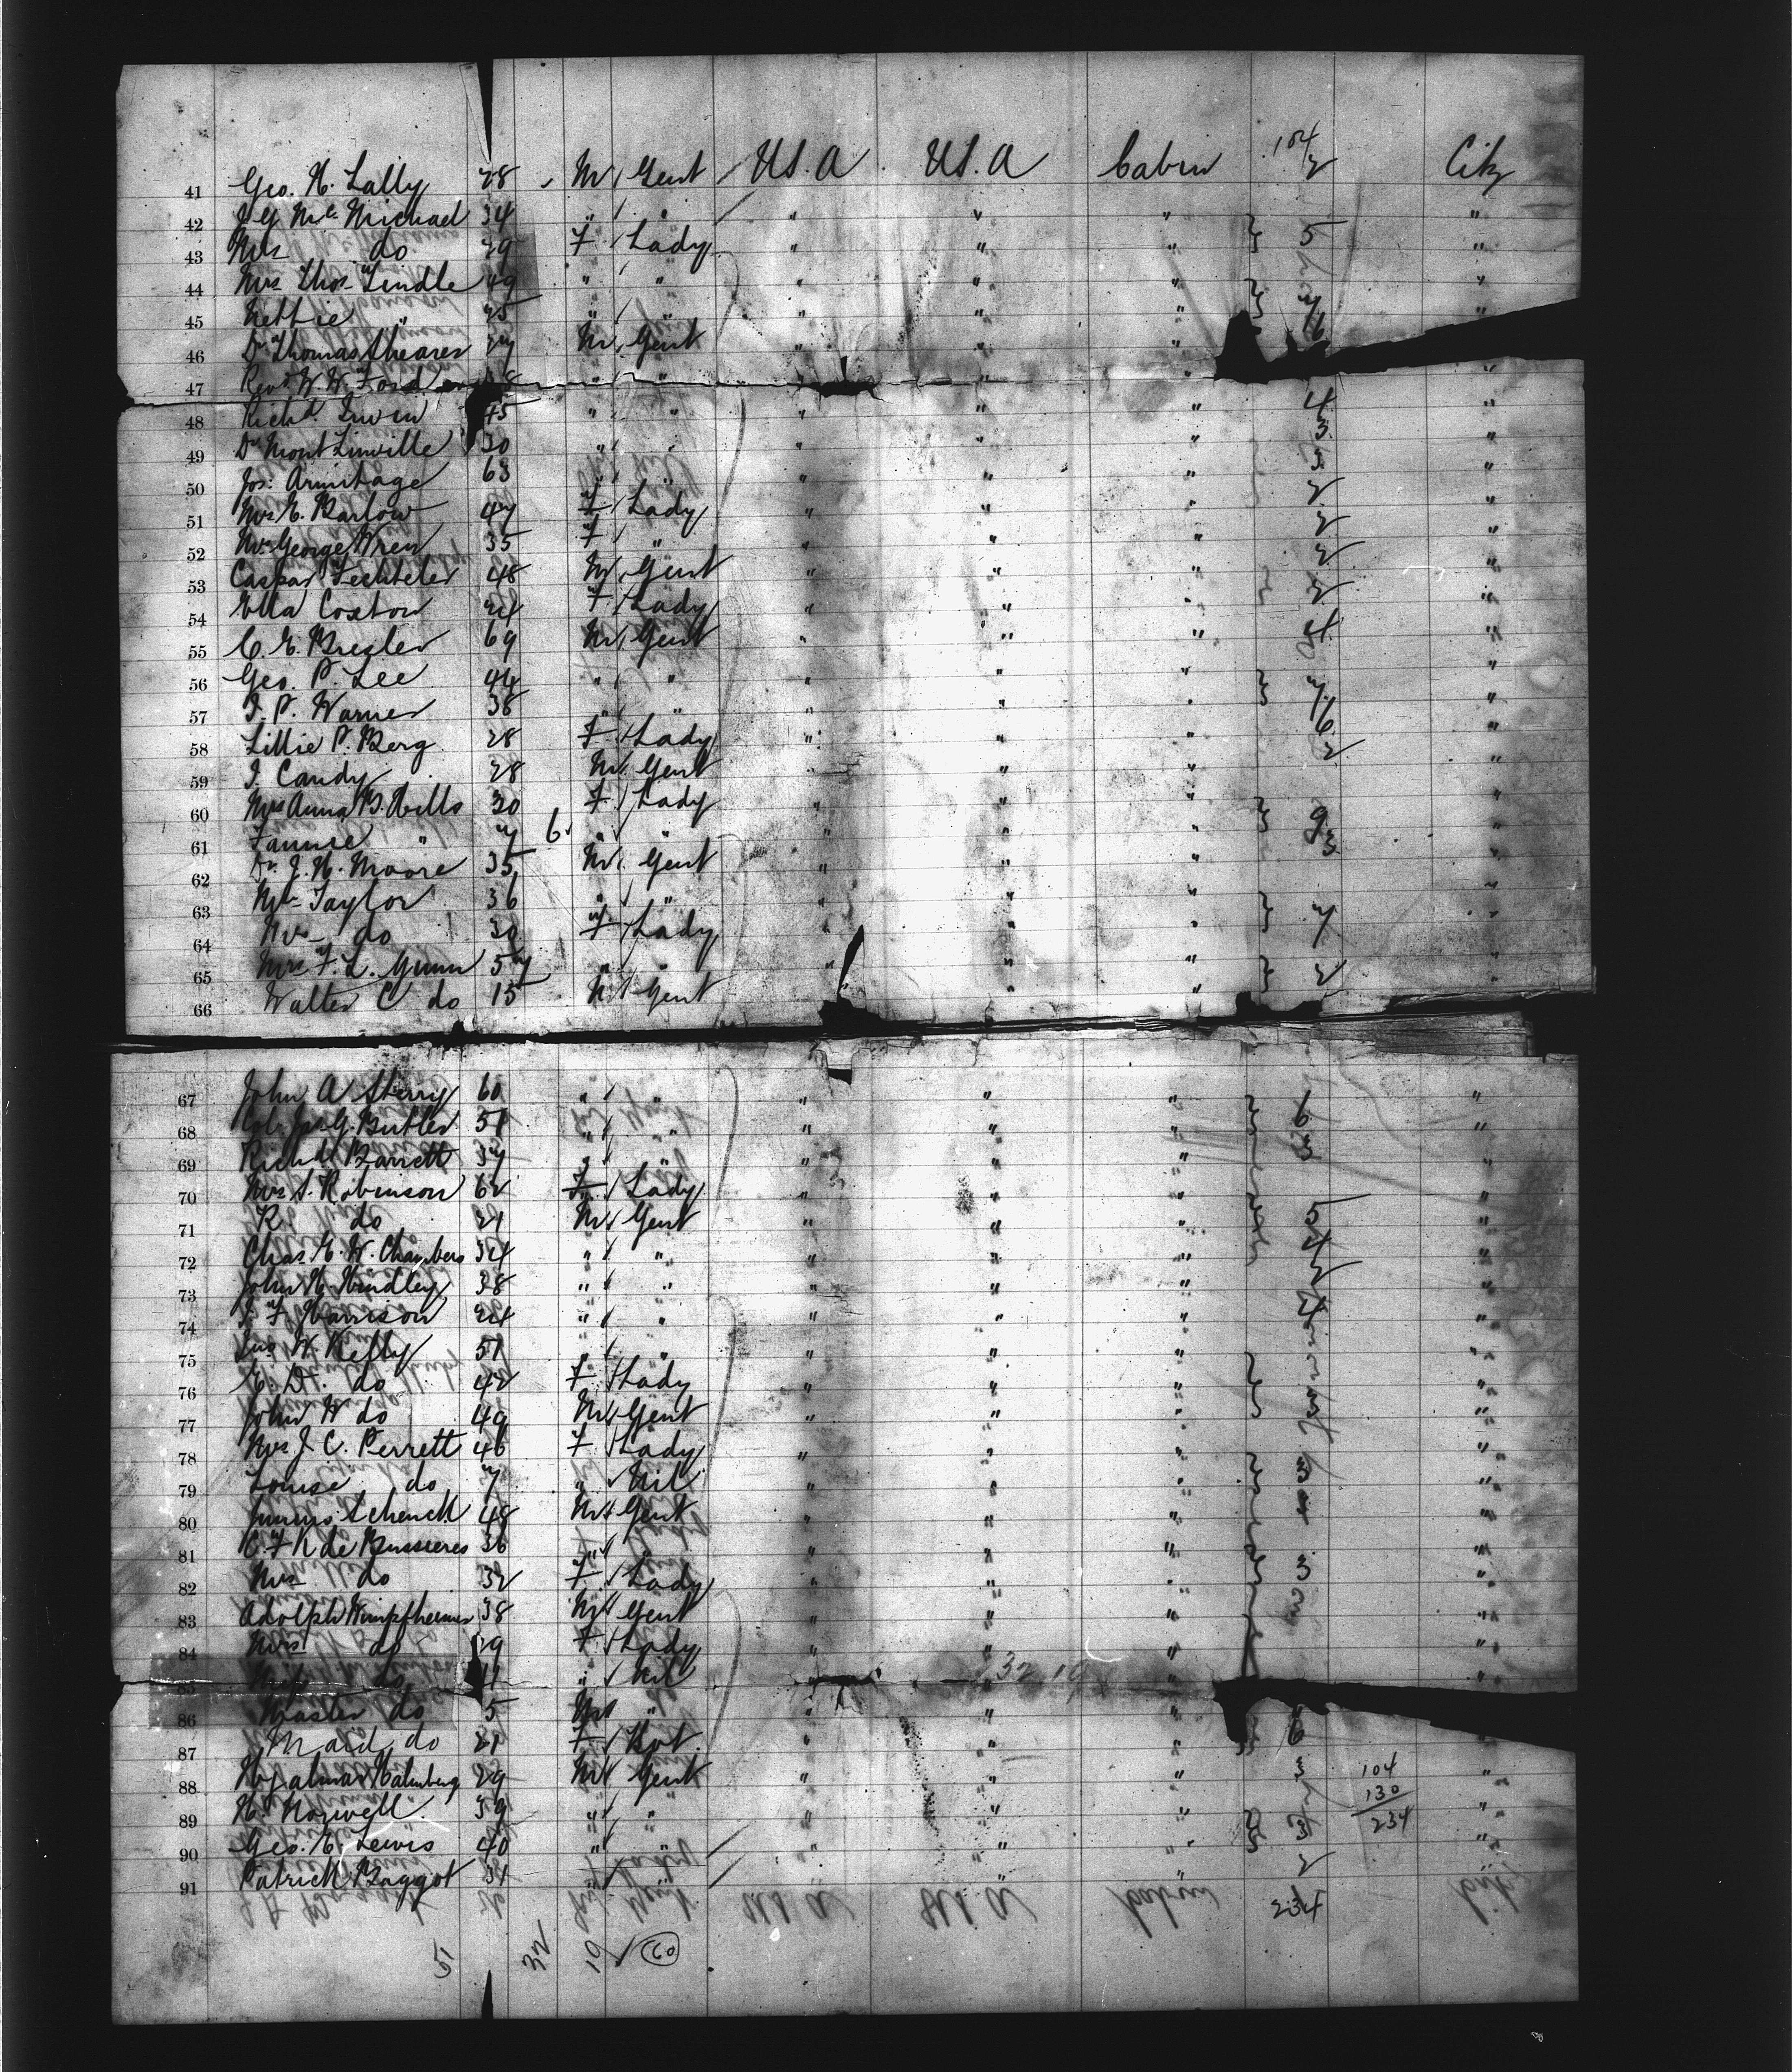 41 Geo. H. Lally 28 M Gent U.S.A U.S.A Cabin 104/2 City
42 Mc Michael 34 " " " " " "
43 Mrs do 29 F Lady " " " 5 "
44 Mrs Thos. Lindle 49 " " " " " "
45 Nettie " 25 " " " " "
46 Dr Thomas Shearer M Gent " " " 6
47 Revd W. W. Ford " " " "
48 Richd. Irwin 45 " " " " " 4 "
49 Dr Mont Linville 30 " " " " " 3 "
50 Jos. Armitage 63 " " " " " 3 "
51 Mrs E. Barlow 47 F Lady " " " 2 "
52 Mrs George Wren 35 F " " " " 2 "
53 Caspar Fechteler 48 M Gent " " " 2 "
54 Ella Coxton 24 F Lady " " " 2 "
55 C. E. Bresler 69 M Gent " " " 4 "
56 Geo. P. Lee 44 " " " " " "
57 J. P. Warner 38 " " " " " 7 "
58 Lillie P. Berg 28 F Lady " " " 6 "
59 J. Candy 28 M Gent " " " 2 "
60 Mrs Anna B. Hills 30 F Lady " " " "
61 Fannie " 7 6 " " " " 9 "
62 Dr. J. H. Moore 35 M Gent " " " 3 "
63 Mr Taylor 36 " " " " " "
64 Mrs do 30 F Lady " " " 7 "
65 Mrs F. L. Gunn 57 " " " " "
66 Walter C do 15 M Gent " " " 2 "
67 John A Sterry 60 " " " " " "
68 Col. Jas. G. Butler 51 " " " " " 6 "
69 Richd Barrett 37 " " " " " 3
70 Mrs S. Robinson 62 F Lady " " " "
71 R do 21 M Gent " " " 5 "
72 Chas. E. W. Chambers 34 " " " " " 4 "
73 John H. Hindley 38 " " " " " 2 "
74 J. F. Harrison 24 " " " " " 4 "
75 Jno. W. Kelly 51 " " " " " "
76 E. D. do 42 F Lady " " " "
77 John W do 49 M Gent " " " "
78 Mrs J. C. Perrett 46 F Lady " " " "
79 Louise do 7 " Nil " " " 3 "
80 Schenck 48 M Gent " " " 4 "
81 C. F. K de Bussieres 36 " " " " "
82 Mrs do 32 F Lady " " " 3 "
83 Adolph Wimpfheimer 38 M Gent " " " "
84 Mrs do 29 F Lady " " " "
85 Miss do 11 " Nil " " "
86 Master do 5 M " " " "
87 Maid do 21 F " " " 6
88 Hjalmar Malmberg 29 M Gent " " " 3 104 "
89 H. Norwell 39 " " " " " 130 "
90 Geo. E. Lewis 40 " " " " 3 234 "
91 Patrick Baggot 31 " " " " " 2
234
51 32 19 60